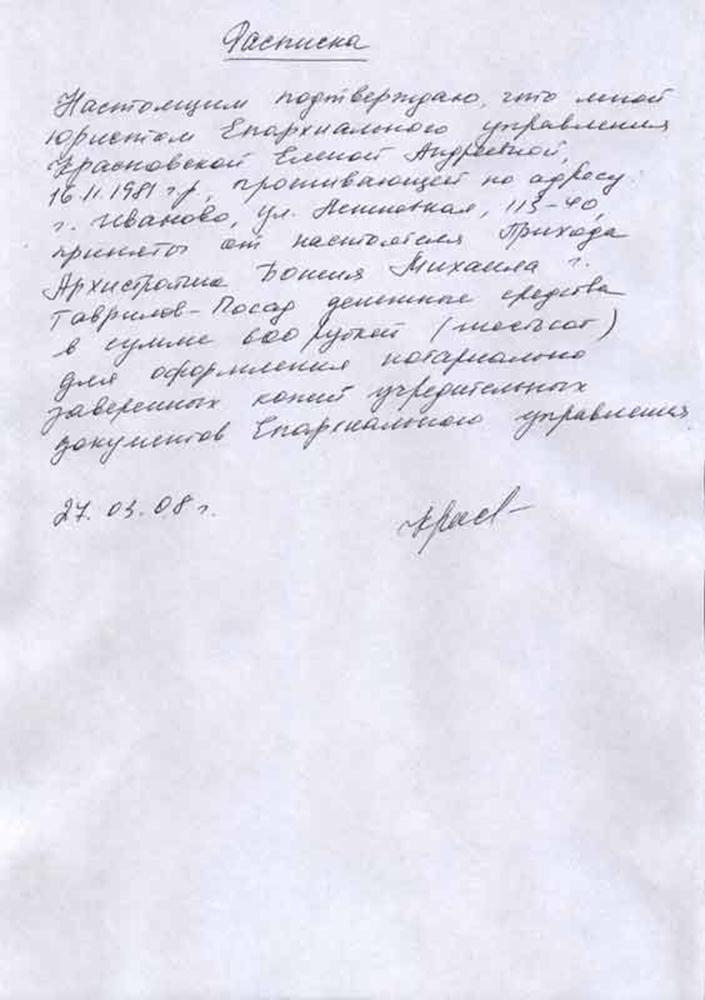 Расписка
Настоящим подтверждаю, что мной
юристом Епархиального управления
Красновской Еленой Андреевной,
16.11.1981 г.р., проживающей по адресу:
г. Иваново, ул. 113-40,
приняты от настоятеля Прихода
Архистратига Божия Михаила г.
Гаврилов-Посад денежные средства
в сумме 600 рублей (шестьсот)
для оформления нотариально
заверенных копий учредительных
документов Епархиального управления
27.03.08 г.